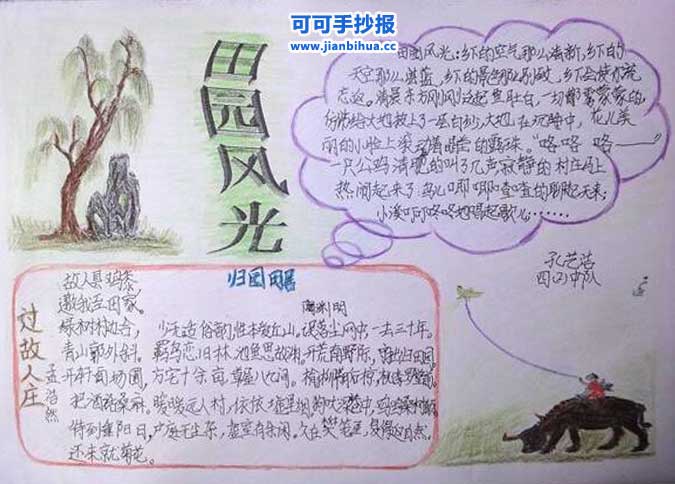 可可手抄报
www.jianbihua.cc
田园风光
田园风光：乡下的空气那么清新，乡下的
天空那么湛蓝，乡下的景色那么别致，乡下会使你流
忘返。清晨东方刚刚泛起鱼肚白，一切都雾蒙蒙的，
仿佛给大地披上了一层白纱，大地在沉睡中，花儿美
丽的小脸上滚动着晶莹的露珠。“咯 咯 咯——”
一只公鸡清脆的叫了几声，寂静的村庄马上
热闹起来了，鸟儿唧唧喳喳的聊起天来；
小溪叮叮咚咚地唱起歌儿……
四(2)中队
过故人庄
孟浩然
故人具鸡黍，
邀我至田家。
绿树村边合，
青山郭外斜。
开轩面场圃，
把酒话桑麻。
待到重阳日，
还来就菊花。
归园田居
陶渊明
少无适俗韵，性本爱丘山。误落尘网中，一去三十年。
羁鸟恋旧林，池鱼思故渊。开荒南野际，守拙归园田。
方宅十余亩，草屋八九间。榆柳荫后檐，桃李
暧暧远人村，依依墟里烟。狗吠深巷中，鸡鸣桑树颠。
户庭无尘杂，虚室有余闲。久在樊笼里，复得返自然。